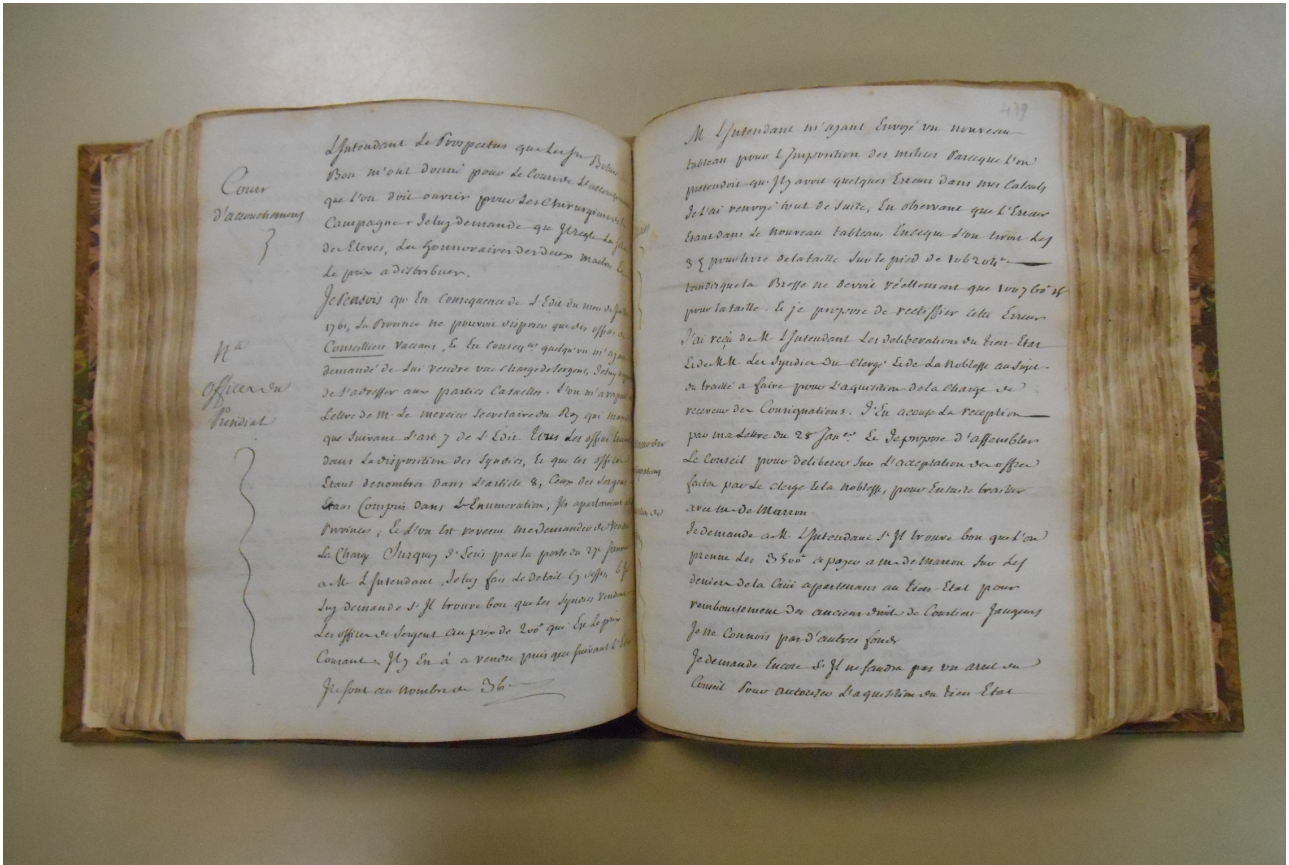 Cours
d'accouchemens
L'Intendant Le Prospectus que Les Srs
Bon m'ont donné pour Le Cours de
que L'on doit ouvrir pour Les Chirurgiens de
Campagne & Je luy demande qu'Il regle Le
des Eleves, Les honnoraires des deux maitres Et
Le prix a distribuer.
Na
officer du
Presidial
Je Pensois qu'En Consequence de L'Edit du mois de
1761, La Province ne pouvoit disposer que des offices de
Conseillers vacans, Et En quelqu'un m'ayant
demandé de Lui vendre une Charge de Sergent, Je luy
de S'adresser aux parties Casuelles. L'on m'a
Lettre de Mr Le mercier Secretaire du Roy qui
que suivant L'art 7 de L'Edit Tous Les offices
dans La disposition des Syndics, Et que les offices
Etans denombrés dans L'article 8, Ceux des Sergens
Etans Compris dans L'Enumeration, Ils apartiennent
Province, Et L'on Est revenu me demander de vendre
La Charge Surquoy J'Ecris par la poste du 27
a Mr L'Intendant, Je luy fais Le detail Cy dessus, Et Je
Luy demande S'Il trouve bon que les Syndics Vendent
Les offices de Sergent au prix de 200 qui Est Le prix
Courant, Il y En a a vendre puis que suivant L'
Ils sont au nombre de 36
439
Mr L'Intendant m'ayant Envoyé un nouveau
tableau pour L'Imposition des milices Parceque L'on
pretendoit qu'Il y avoit quelques Erreurs dans mes Calculs
Je L'ai renvoyé tout de Suite, En observant que L'Erreur
Etant dans Le nouveau tableau En ce que L'on tiroit Les
3 s pour livre de la taille Sur le pied de 106204
tandis que la Bresse ne devoit réellement que
pour la taille. Et je propose de rectiffier cette Erreur
J'ai reçu de Mr L'Intendant Les deliberations du tiers Etat
Et de MM. Les Syndics Du Clergé Et de La Noblesse au Sujet
du traitté a faire pour L'aquisition de la Charge de
receveur des Consignations. J'En accuse La reception
par ma Lettre du 28 Janer Et Je propose d'assembler
Le Conseil pour deliberer Sur L'acceptation des offres
faites par Le Clergé Et la Noblesse, pour Ensuite traiter
avec Mr de Marron
Je demande a Mr L'Intendant S'Il trouve bon que L'on
prenne Les 3500 a payer a Mr de Marron Sur Les
deniers de la Crüe appartenans au tiers Etat pour
remboursement des anciens droits de Courtiers Jaugeurs
Je ne Connois pas d'autres fonds
Je demande Encore S'Il ne faudra pas un arret du
Conseil Pour autoriser L'aquisition du tiers Etat